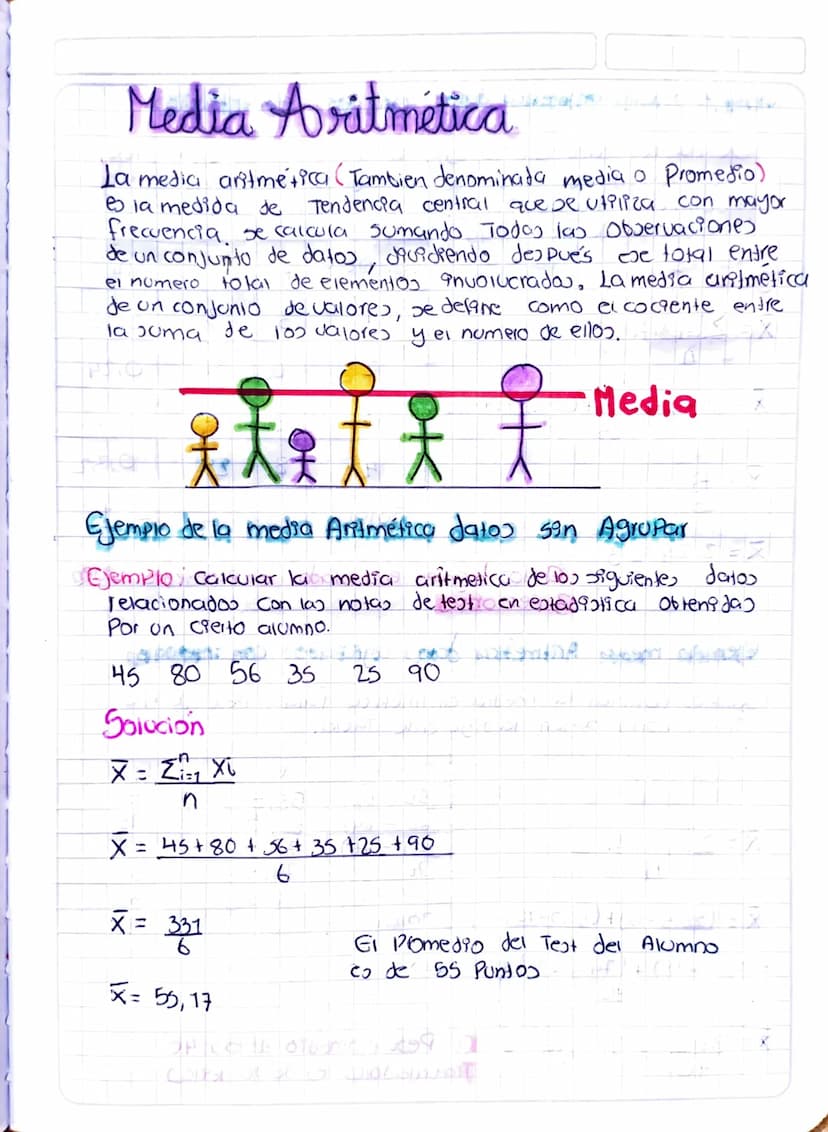 Media Aritmética
La media aritmética (Tambien denominada media o Promedio)
es la medida de Tendencia central que se utiliza con mayor
frecuencia, se calcula sumando Todos las Observaciones
de un conjunto de datos, dividiendo después ese total entre
el numero total de elementos involucrados, La media aritmética
de un conjunto de valores, se define como el cociente entre
la suma de los valores y el numero de ellos.
Media
Ejemplo de la media Aritmética datos sin Agrupar
Ejemplo: Calcular la media aritmetica de los siguientes datos
relacionados con las notas de test en estadistica Obtenidas
Por un cierto alumno.
45 80 56 35 25 90
Solución
x̄ = Σⁿᵢ₌₁ Xi
n
x̄ = 45+80+56+35+25+90
6
x̄ = 331
6
El Pomedio del Test del Alumno
es de 55 Puntos
x̄ = 55,17